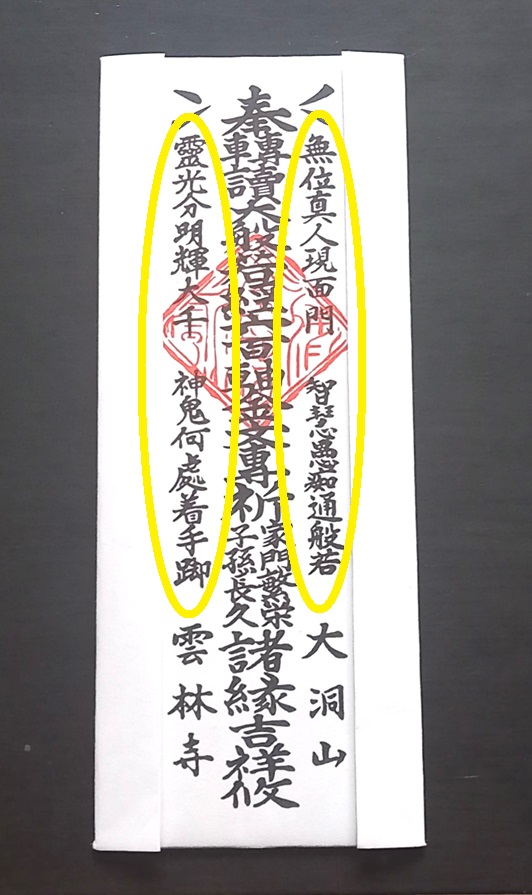 無位真人現面門 智慧愚痴通般若 大洞山
奉轉讀大般若經六百軸金文專祈
家門繁栄
子孫長久
諸縁吉祥攸
靈光分明輝大千 神鬼何處着手脚 雲林寺